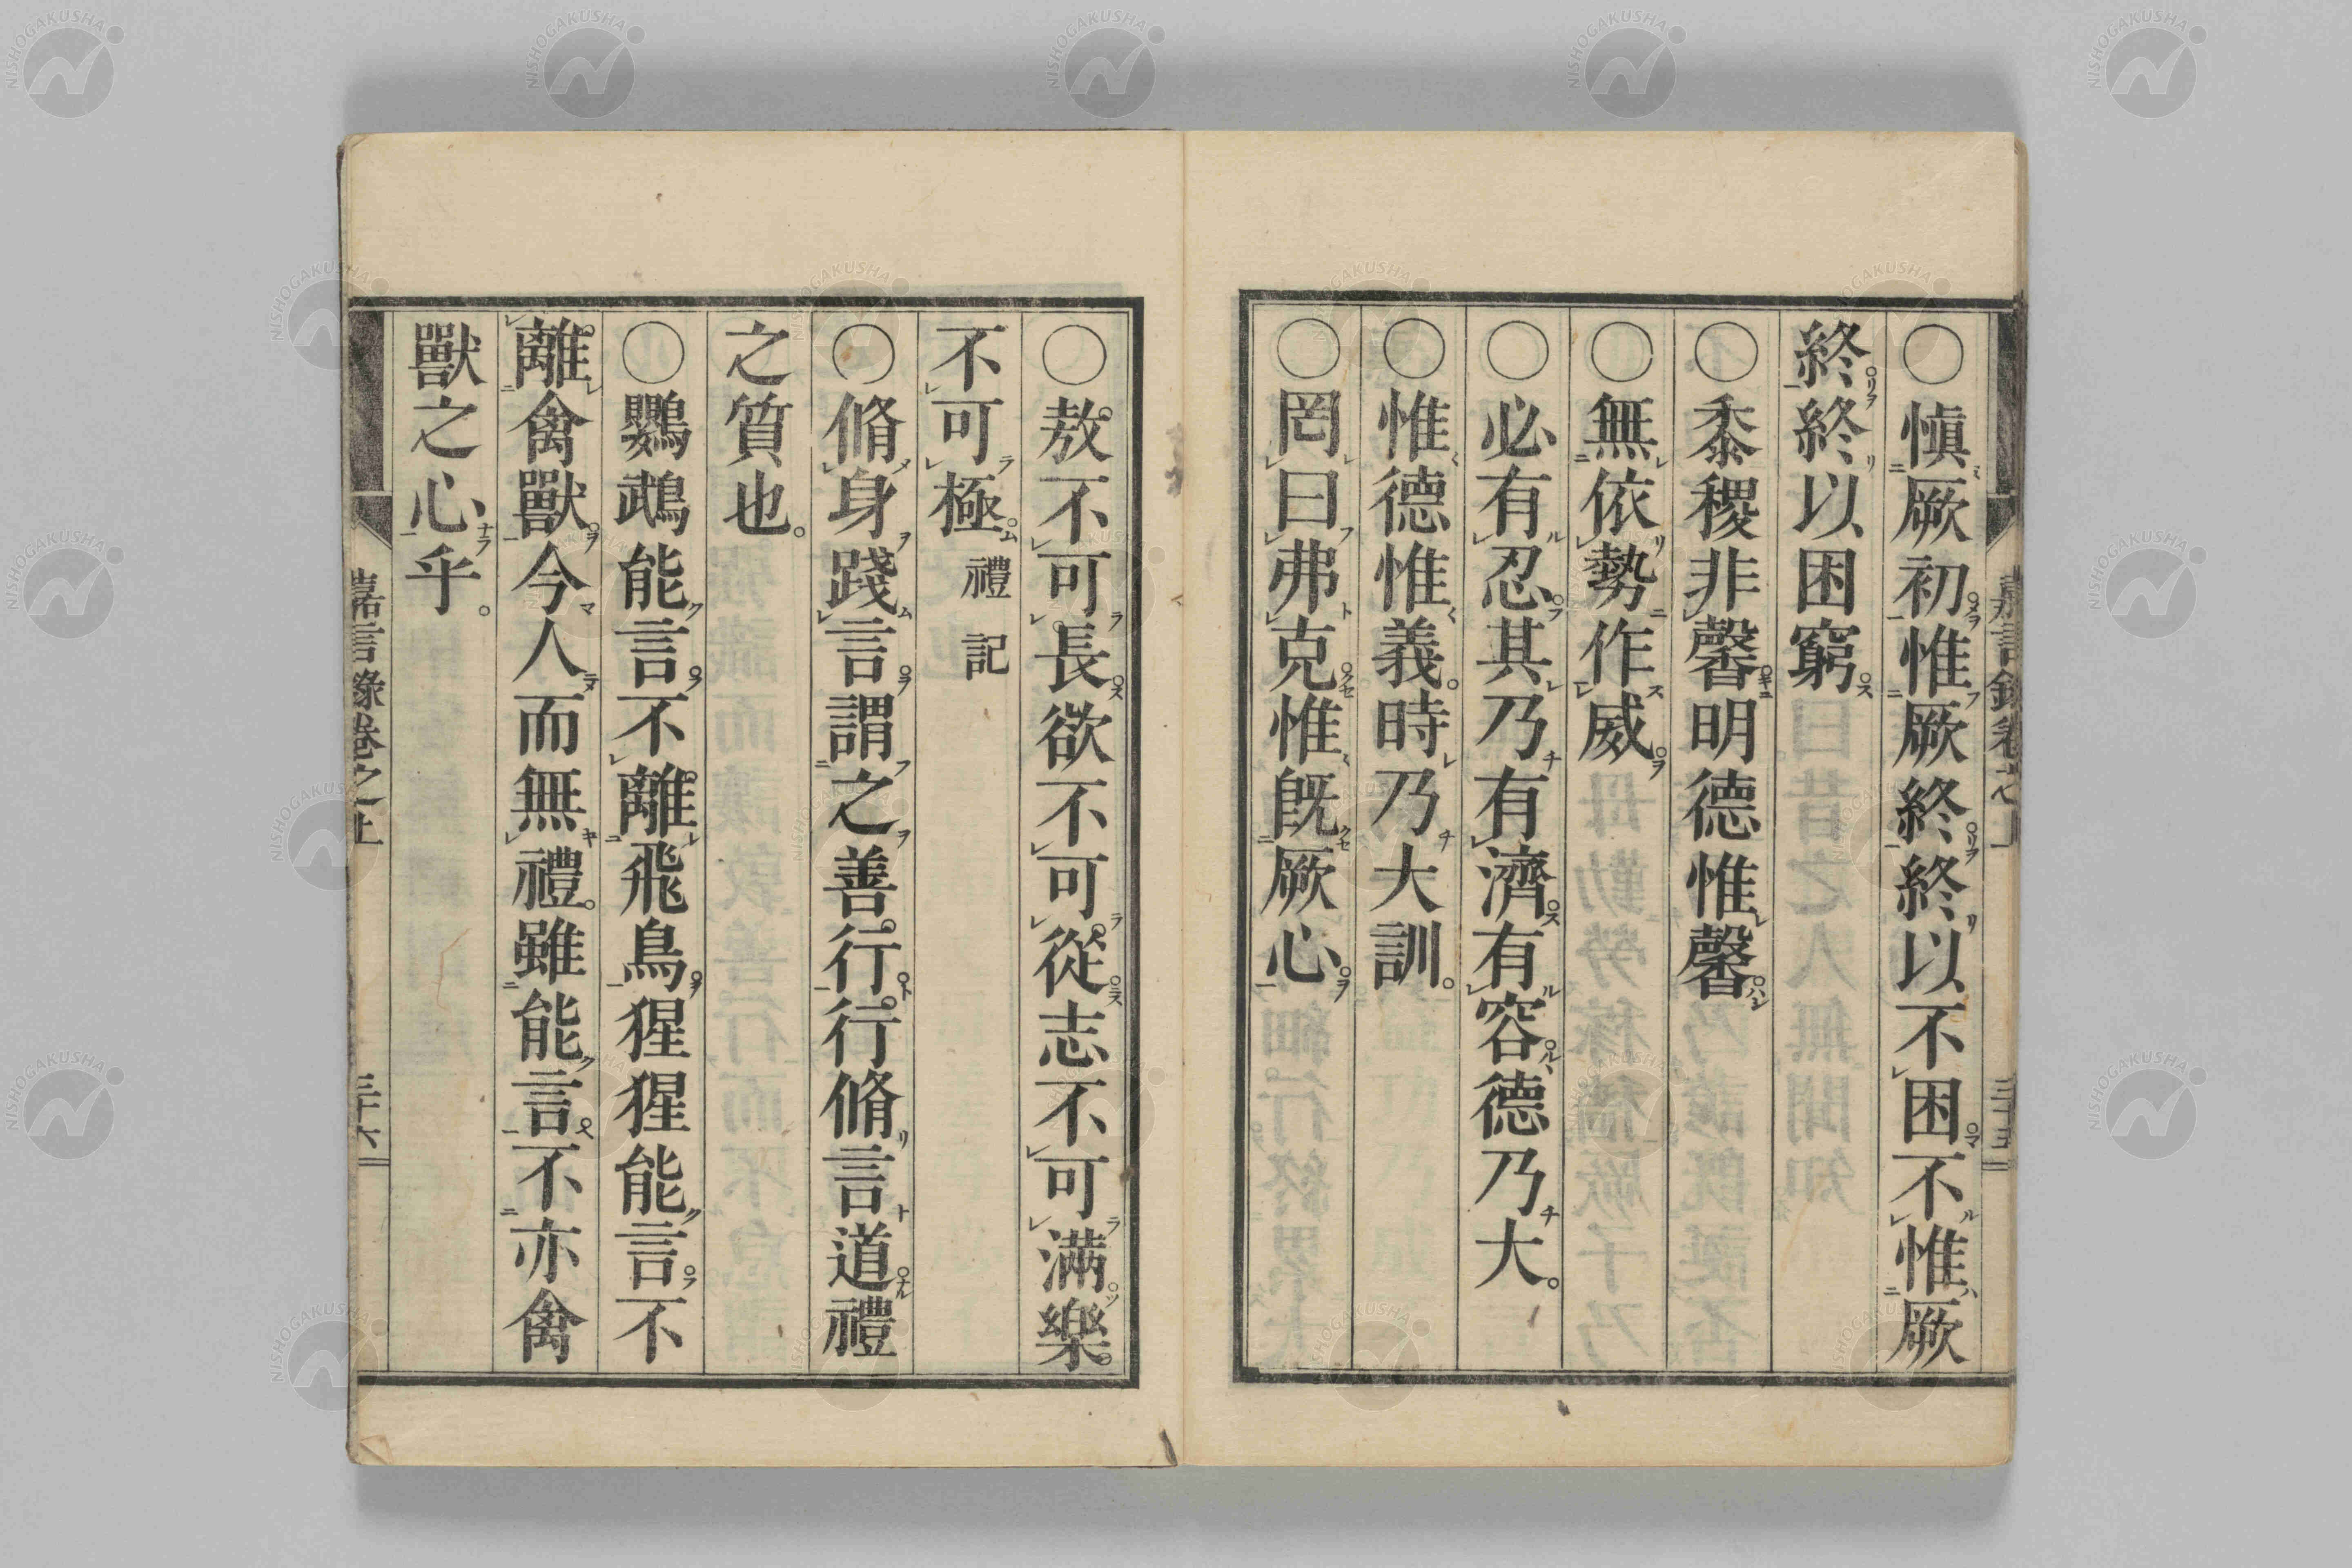 〇愼厥初惟厥終終以不困不惟厥
終終以困窮
〇黍稷非馨明德惟馨
〇無依勢作威
〇必有忍其乃有濟有容德乃大。
〇惟德惟義時乃大訓。
〇罔曰弗克惟旣厥心
嘉言錄卷之上 三十五
〇敖不可長欲不可從志不可滿樂
不可極 禮記
〇脩身踐言謂之善行行脩言道禮
之質也。
〇鸚鵡能言不離飛鳥猩猩能言不
離禽獸今人而無禮。雖能言不亦禽
獸之心乎。
嘉言錄卷之上 三十六
NISHOGAKUSHA